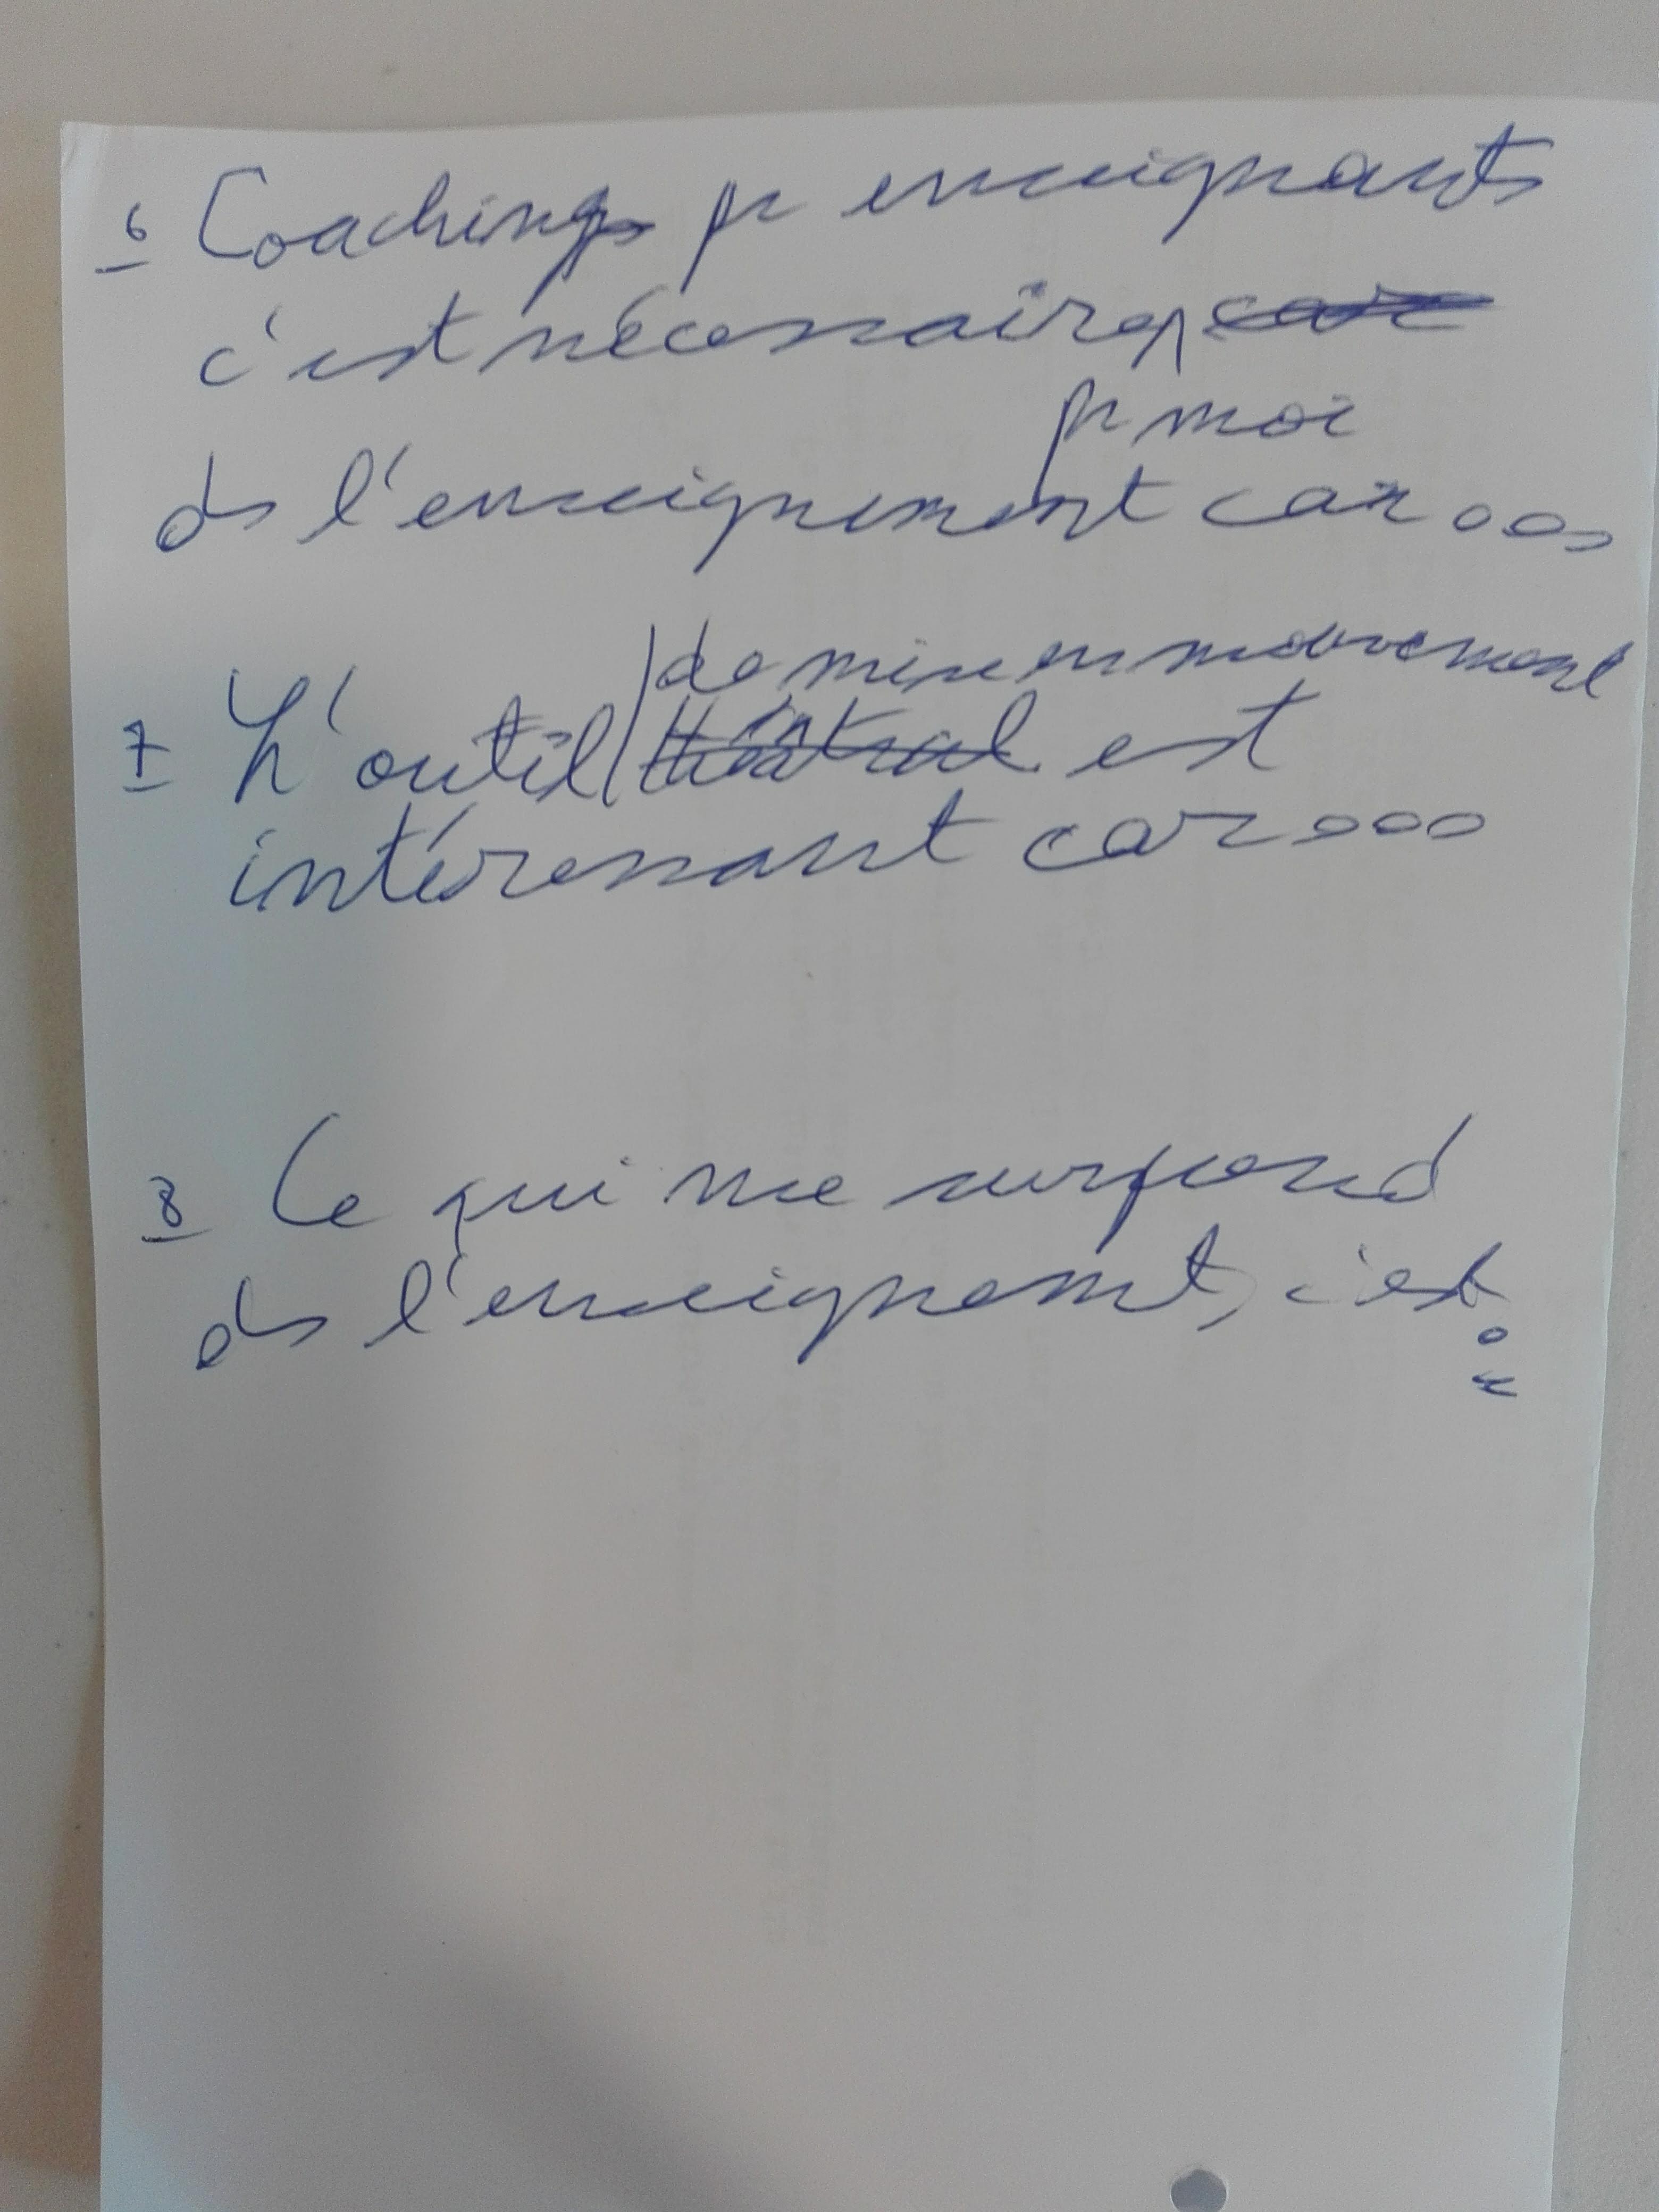 6 Coaching pr enseignants
c'est nécessaire, car
pr moi
ds l'enseignement car ...
de mise en mouvement
7 L'outil théâtral est
intéressant car ...
8 Ce qui me surprend
ds l'enseignemt, c'est